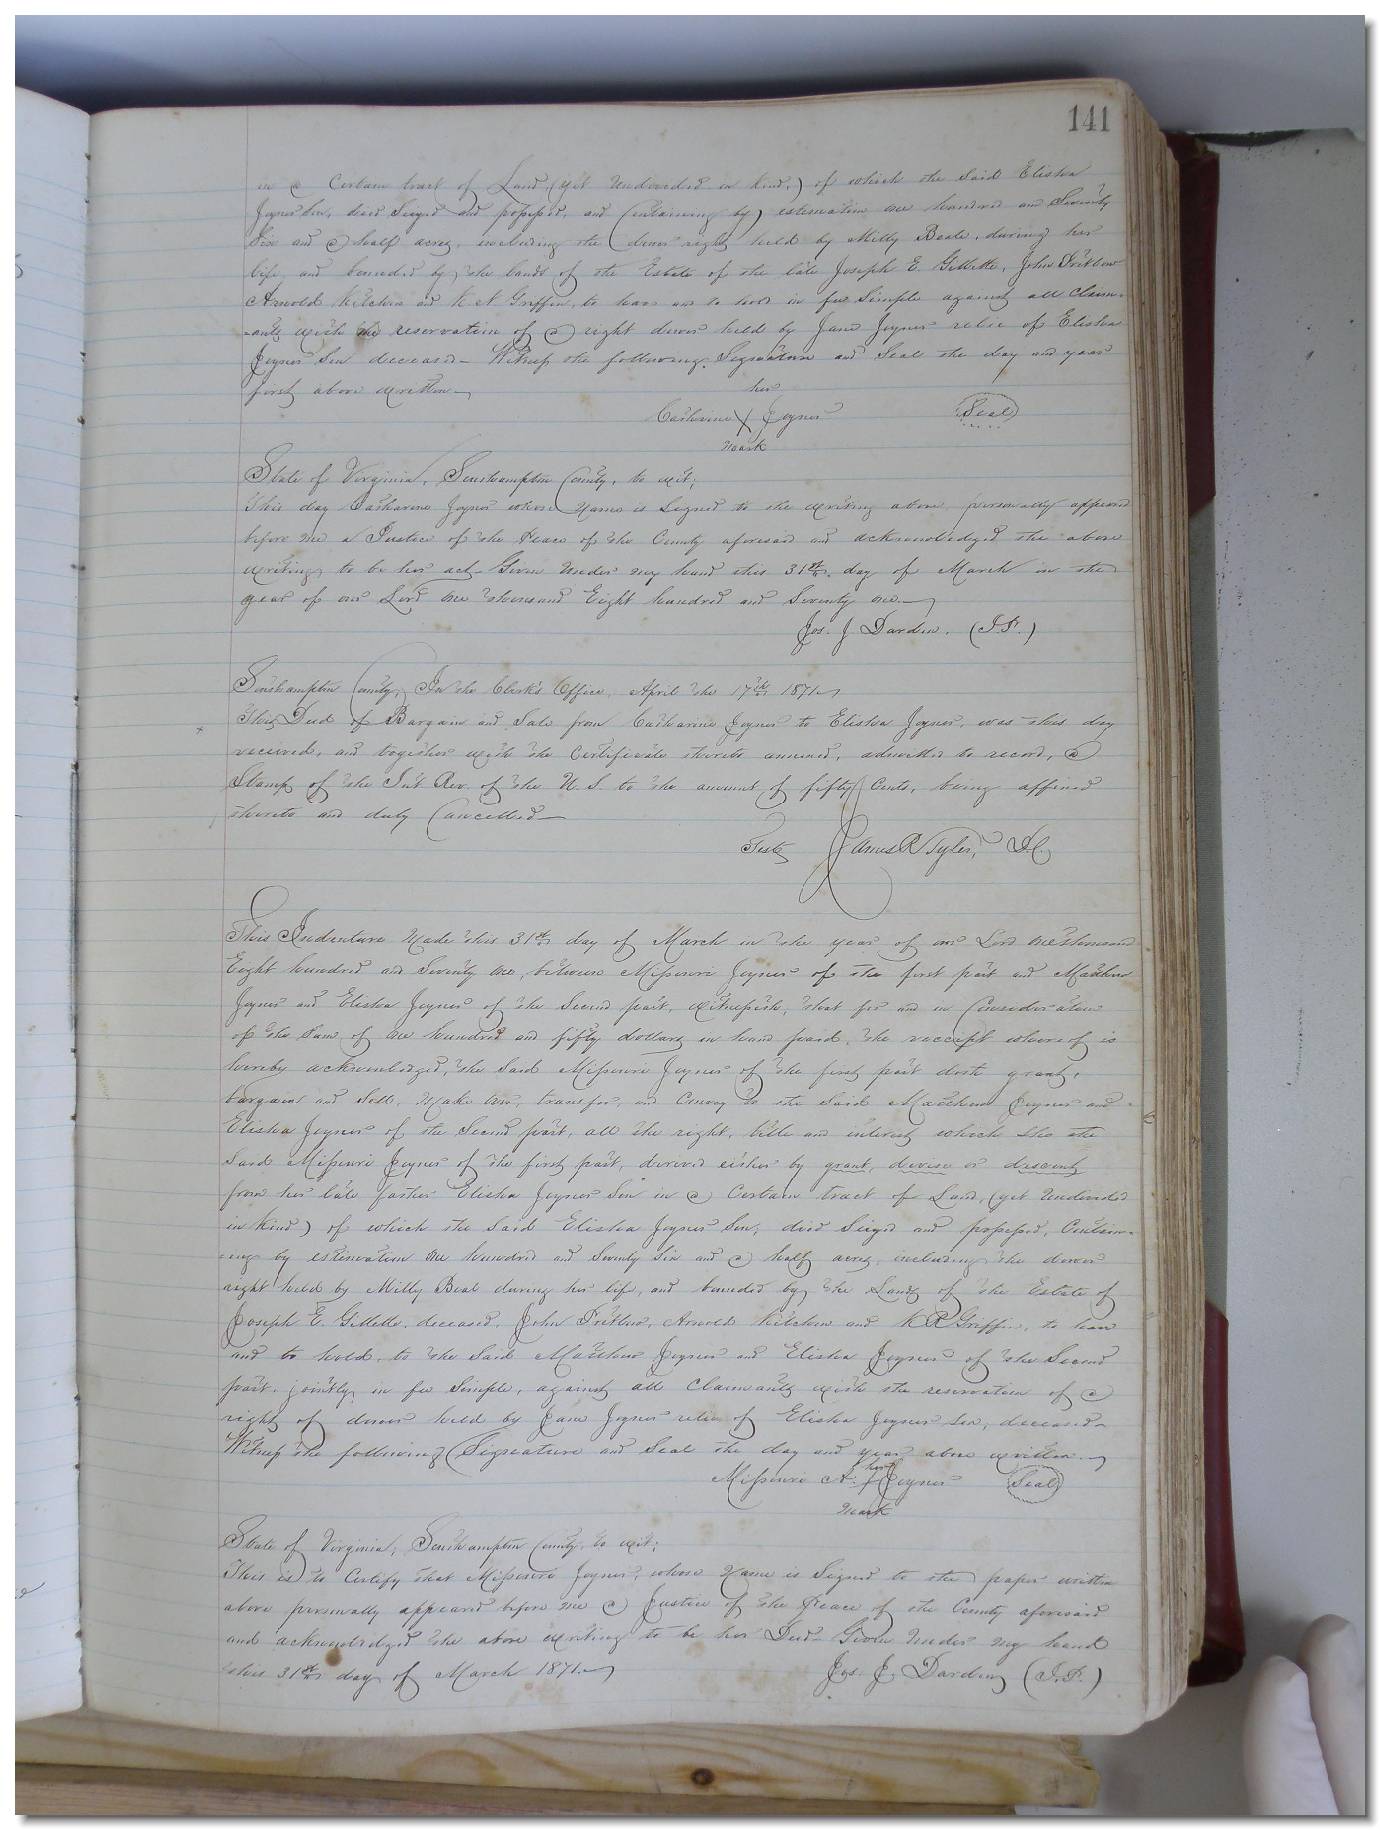 141
in a Certain tract of Land, (yet undivided in kind,) of which the said Elisha
Joyner Sen, died Seized and possessed, and Containing by estimation one hundred and Seventy
Six and a half acres, including the dower right held by Milly Beale, during her
life, and bounded by the lands of the Estate of the late Joseph E. Gillette, John Pretlow
Arnold Kitchen and K N Griffin, to have and to hold in fee Simple against all claim-
-ants with the reservation of a right dower held by Jane Joyner relic of Elisha
Joyner Sen deceased - Witness the following Signature and Seal the day and year
first above written
her
Catharine X Joyner (Seal)
mark
State of Virginia, Southampton County, to wit;
This day Catharine Joyner whose Name is Signed to the writing above personally appeared
before me a Justice of the Peace of the County aforesaid and acknowledged the above
writing to be her act - Given Under my hand this 31st day of March in the
year of our Lord One thousand Eight hundred and Seventy one
Jos. J. Darden. (J.P.)
Southampton County, In the Clerk's Office, April the 17th 1871
This Deed of Bargain and Sale from Catharine Joyner to Elisha Joyner, was this day
received, and together with the Certificate thereto annexed, admitted to record, a
Stamp of the Int Rev. of the U. S. to the amount of fifty Cents, being affixed
thereto and duly Cancelled
Teste James R Tyler, D.C.
This Indenture Made this 31st day of March in the year of our Lord One thousand
Eight hundred and Seventy one, between Missouri Joyner of the first part and Matthew
Joyner and Elisha Joyner of the Second part, witnesseth, that for and in Consideration
of the Sum of one hundred and fifty dollars in hand paid, the receipt whereof is
hereby acknowledged, the Said Missouri Joyner of the first part doth grant,
bargain and Sell, make over, transfer, and Convey to the Said Matthew Joyner and
Elisha Joyner of the Second part, all the right, title and interest which She the
Said Missouri Joyner of the first part, derived either by grant, devise or descent
from her late father Elisha Joyner Sen in a Certain tract of Land, (yet Undivided
in kind) of which the Said Elisha Joyner Sen, died Seized and possessed, Contain-
-ing by estimation One hundred and Seventy Six and a half acres, including the dower
right held by Milly Beal during her life, and bounded by the Lands of the Estate of
Joseph E. Gillette, deceased, John Pretlow, Arnold Kitchen and K R Griffin, to have
and to hold, to the Said Matthew Joyner and Elisha Joyner of the Second
part, jointly in fee Simple, against all Claimants with the reservation of a
right of dower held by Jane Joyner relic of Elisha Joyner Sen, deceased
Witness the following Signature and Seal the day and year above written
her
Missouri A. X Joyner (Seal)
Mark
State of Virginia, Southampton County, to wit;
This is to Certify that Missouri Joyner, whose Name is Signed to the paper written
above personally appeared before me a Justice of the Peace of the County aforesaid
and acknowledged the above writing to be her Deed - Given Under my hand
this 31st day of March 1871
Jos. J. Darden (J.P.)